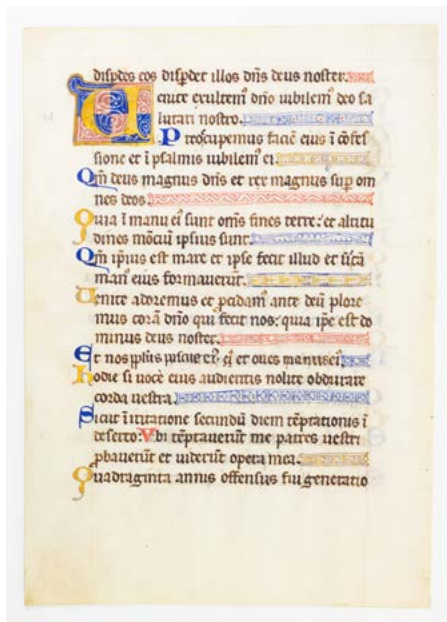 disp̄des eos disp̄det illos dn̄s deus noster.
Uenite exultem᷒ dn̄o iubilem᷒ deo sa
lutari nostro.
Preocupemus faciē eius ī cōfes
sione et ī psalmis iubilem᷒ ei.
Qm̄ deus magnus dn̄s et rex magnus sup̄ om
nes deos.
Quia ī manu ei᷒ sunt om̄s fines terre: et altitu
dines mōciū ip̄ius sunt.
Qm̄ ip̄ius est mare et ipse fecit illud et
man᷒ eius formauerūt.
Uenite adoremus et p̄cidam᷒ ante deū plore
mus corā dn̄o qui fecit nos: quia ip̄e est do
minus deus noster.
Et nos et oues
Hodie si uocē eius audieritis nolite obdurare
corda uestra.
Sicut ī irritatione secundū diem tēptationis ī
deserto: Vbi tēptauerūt me patres uestri
p̄bauerūt et uiderūt opera mea.
Quadraginta annis offensus fui generatio